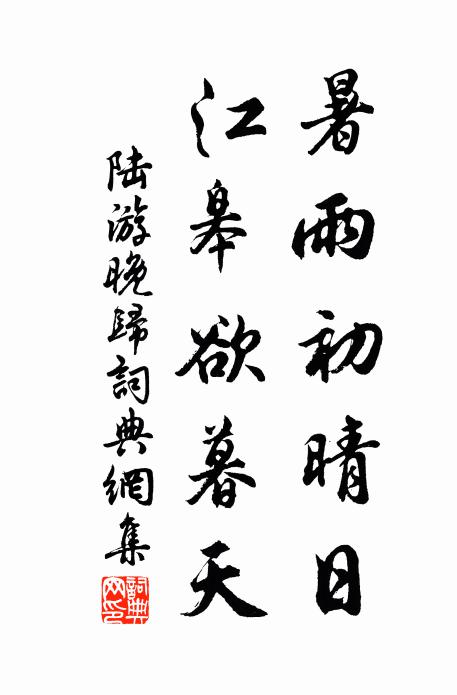 暑雨初晴日
江皋欲暮天
陆游晚歸詞典網集
詞典
网印